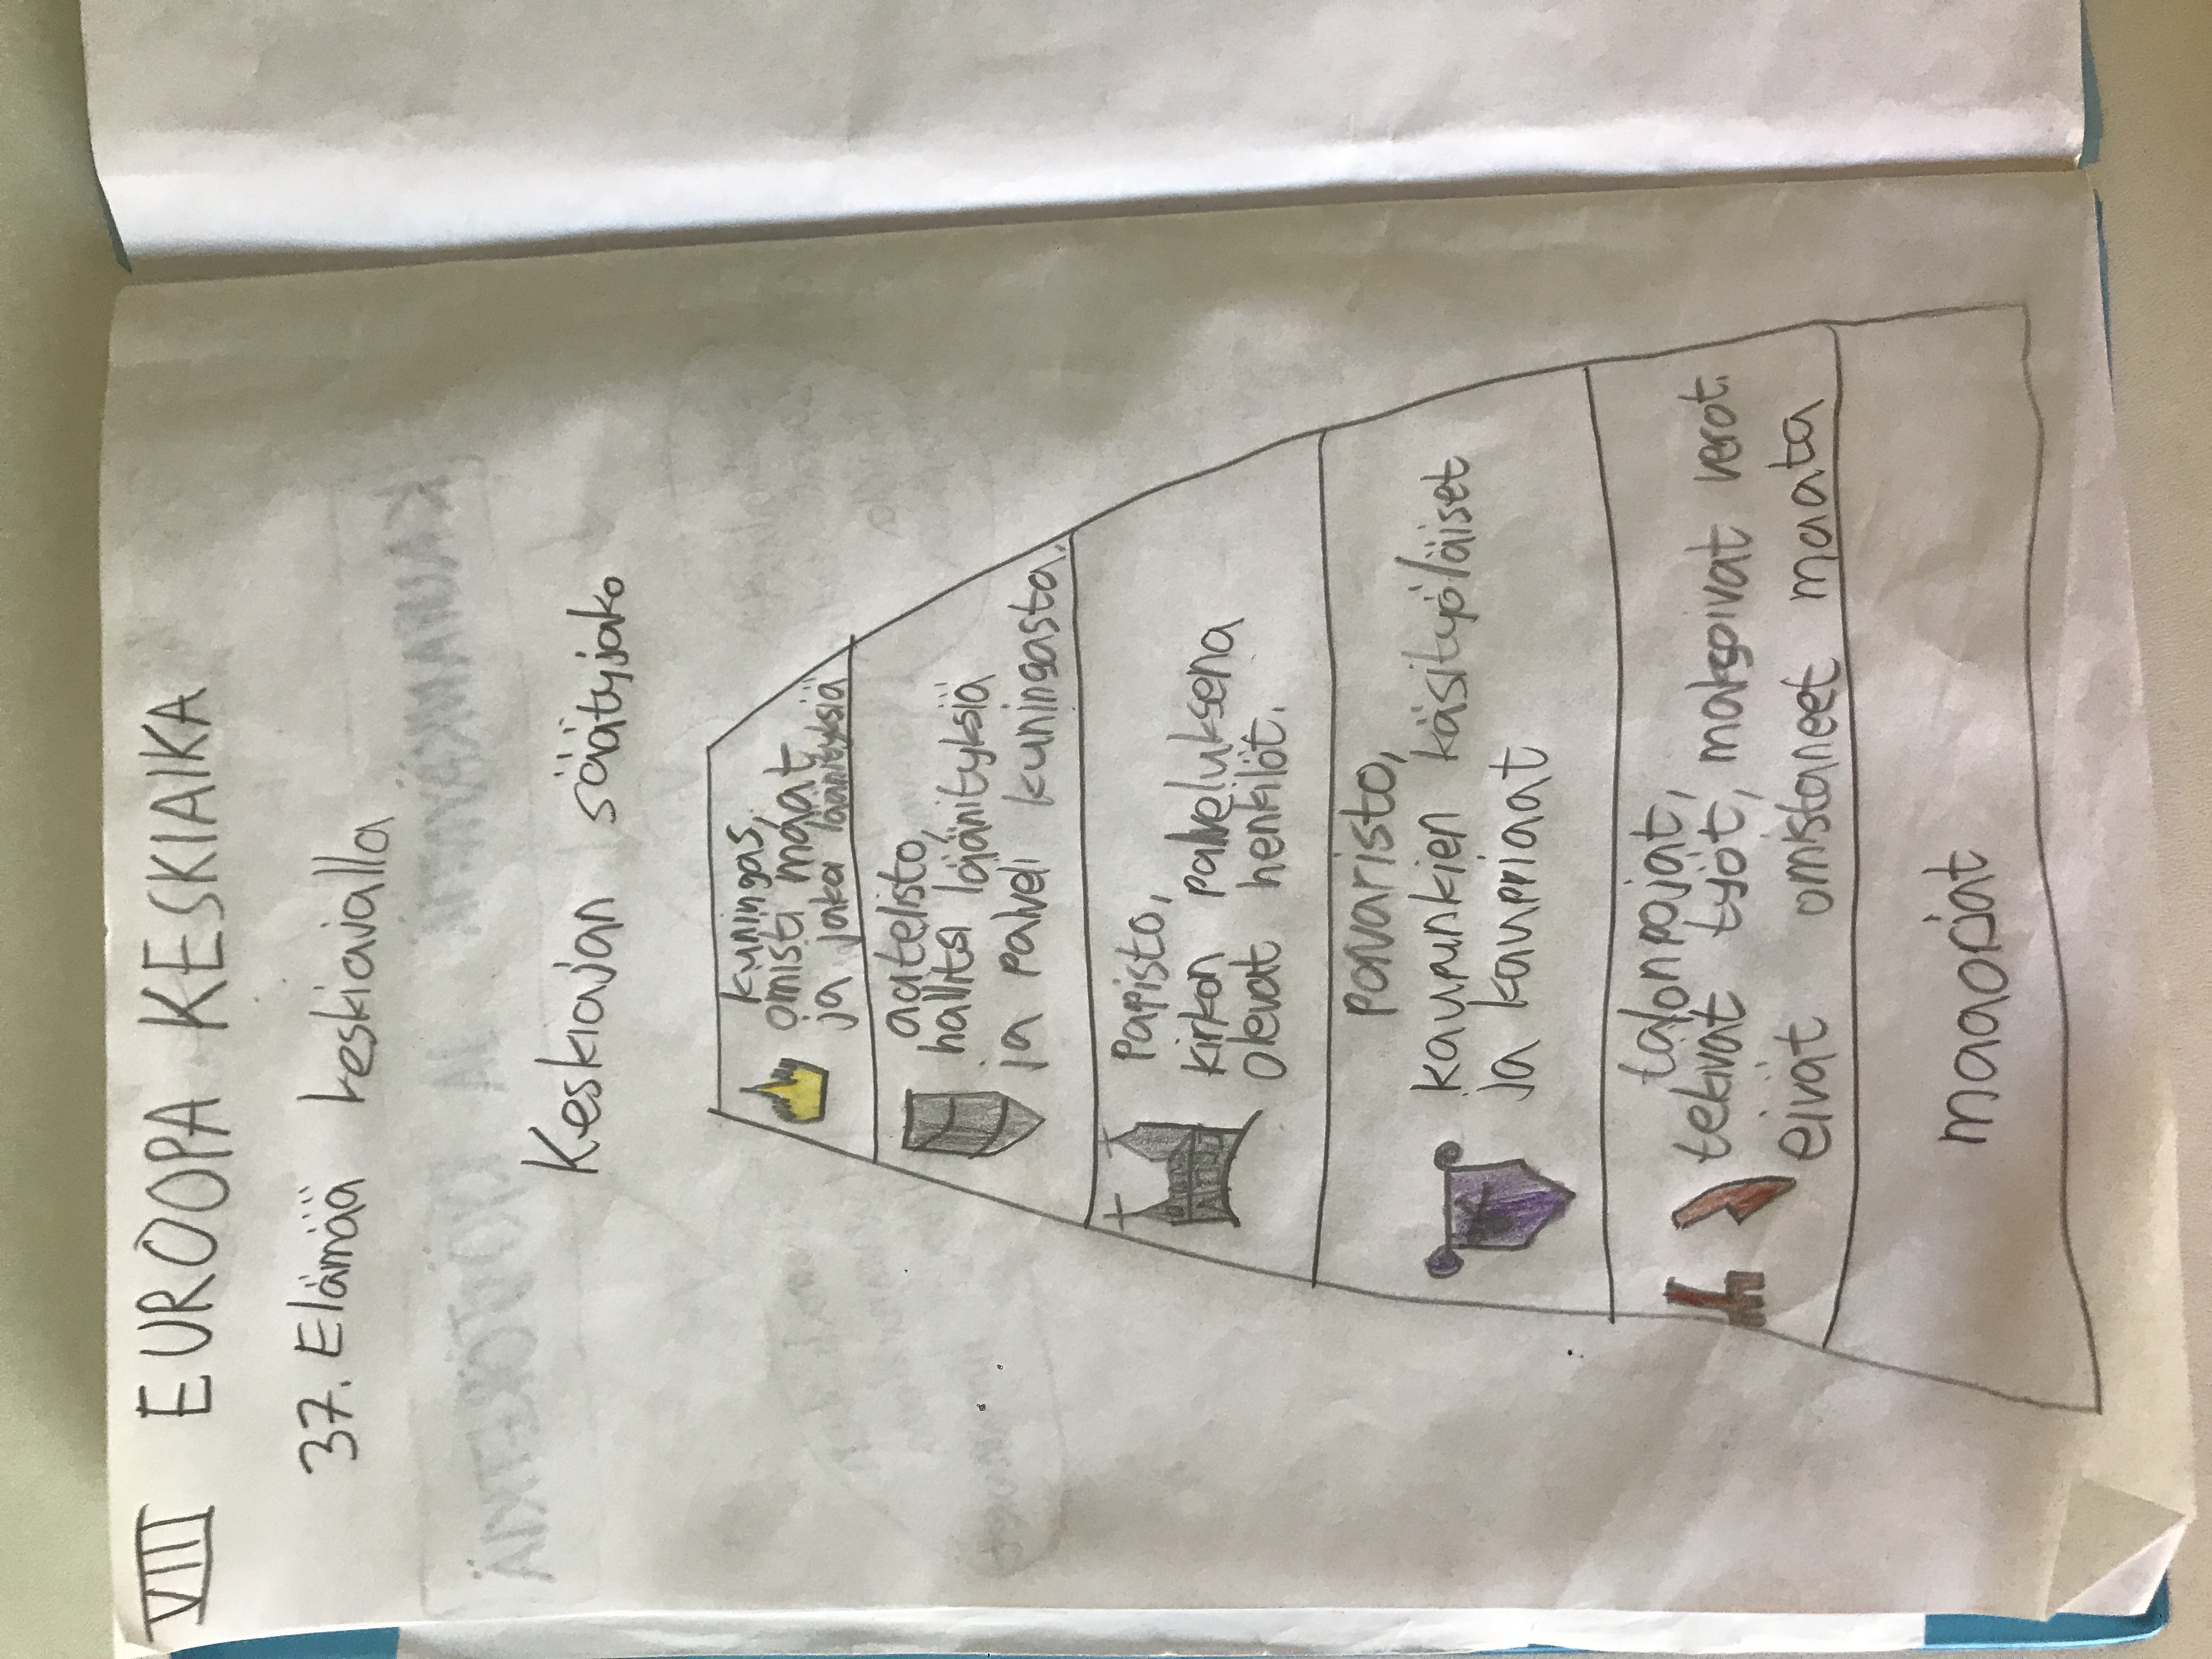 VIII EUROOPA KESKIAIKA
37. Elämää keskiajalla
Keskiajan säätyjako
kuningas,
omisti maat
ja jakoi läänityksiä
aatelisto,
hallitsi läänityksiä
ja palveli kuningasta.
Papisto,
kirkon palveluksena
olevat henkilöt.
porvaristo,
kaupunkien käsityöläiset
ja kauppiaat
talonpojat,
tekivät työt, maksoivat verot.
eivät omistaneet maata
maaorjat